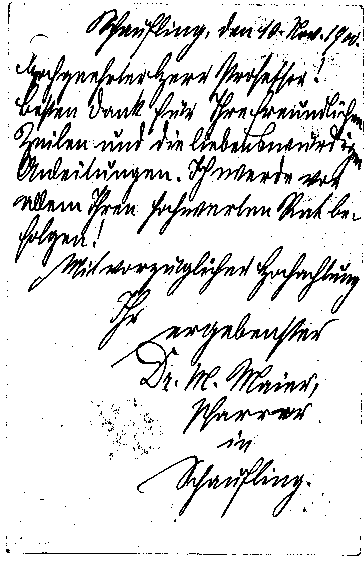 Schaufling, den 10. Nov. 19
Hochgeehrter Herr Professor!
Besten Dank für Ihre freundlichen
Zeilen und die liebenswürdigen
Anleitungen. Ich werde vor
allem Ihren schwerten Rat be-
folgen!
Mit vorzüglicher Hochachtung
Ihr
ergebenster
Dr. M. Maier,
Pfarrer
in
Schaufling.